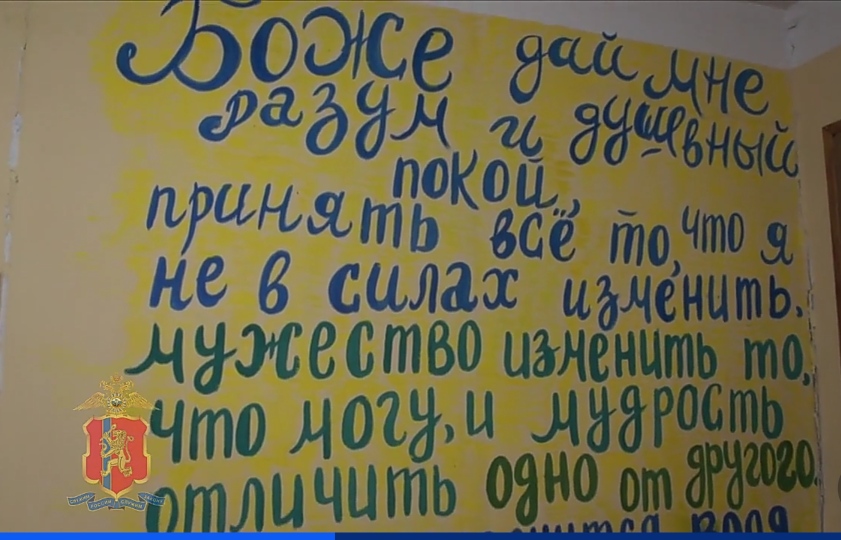 Боже дай мне
разум и душевный
покой,
принять всё то, что я
не в силах изменить,
мужество изменить то,
что могу, и мудрость
отличить одно от другого.
воля